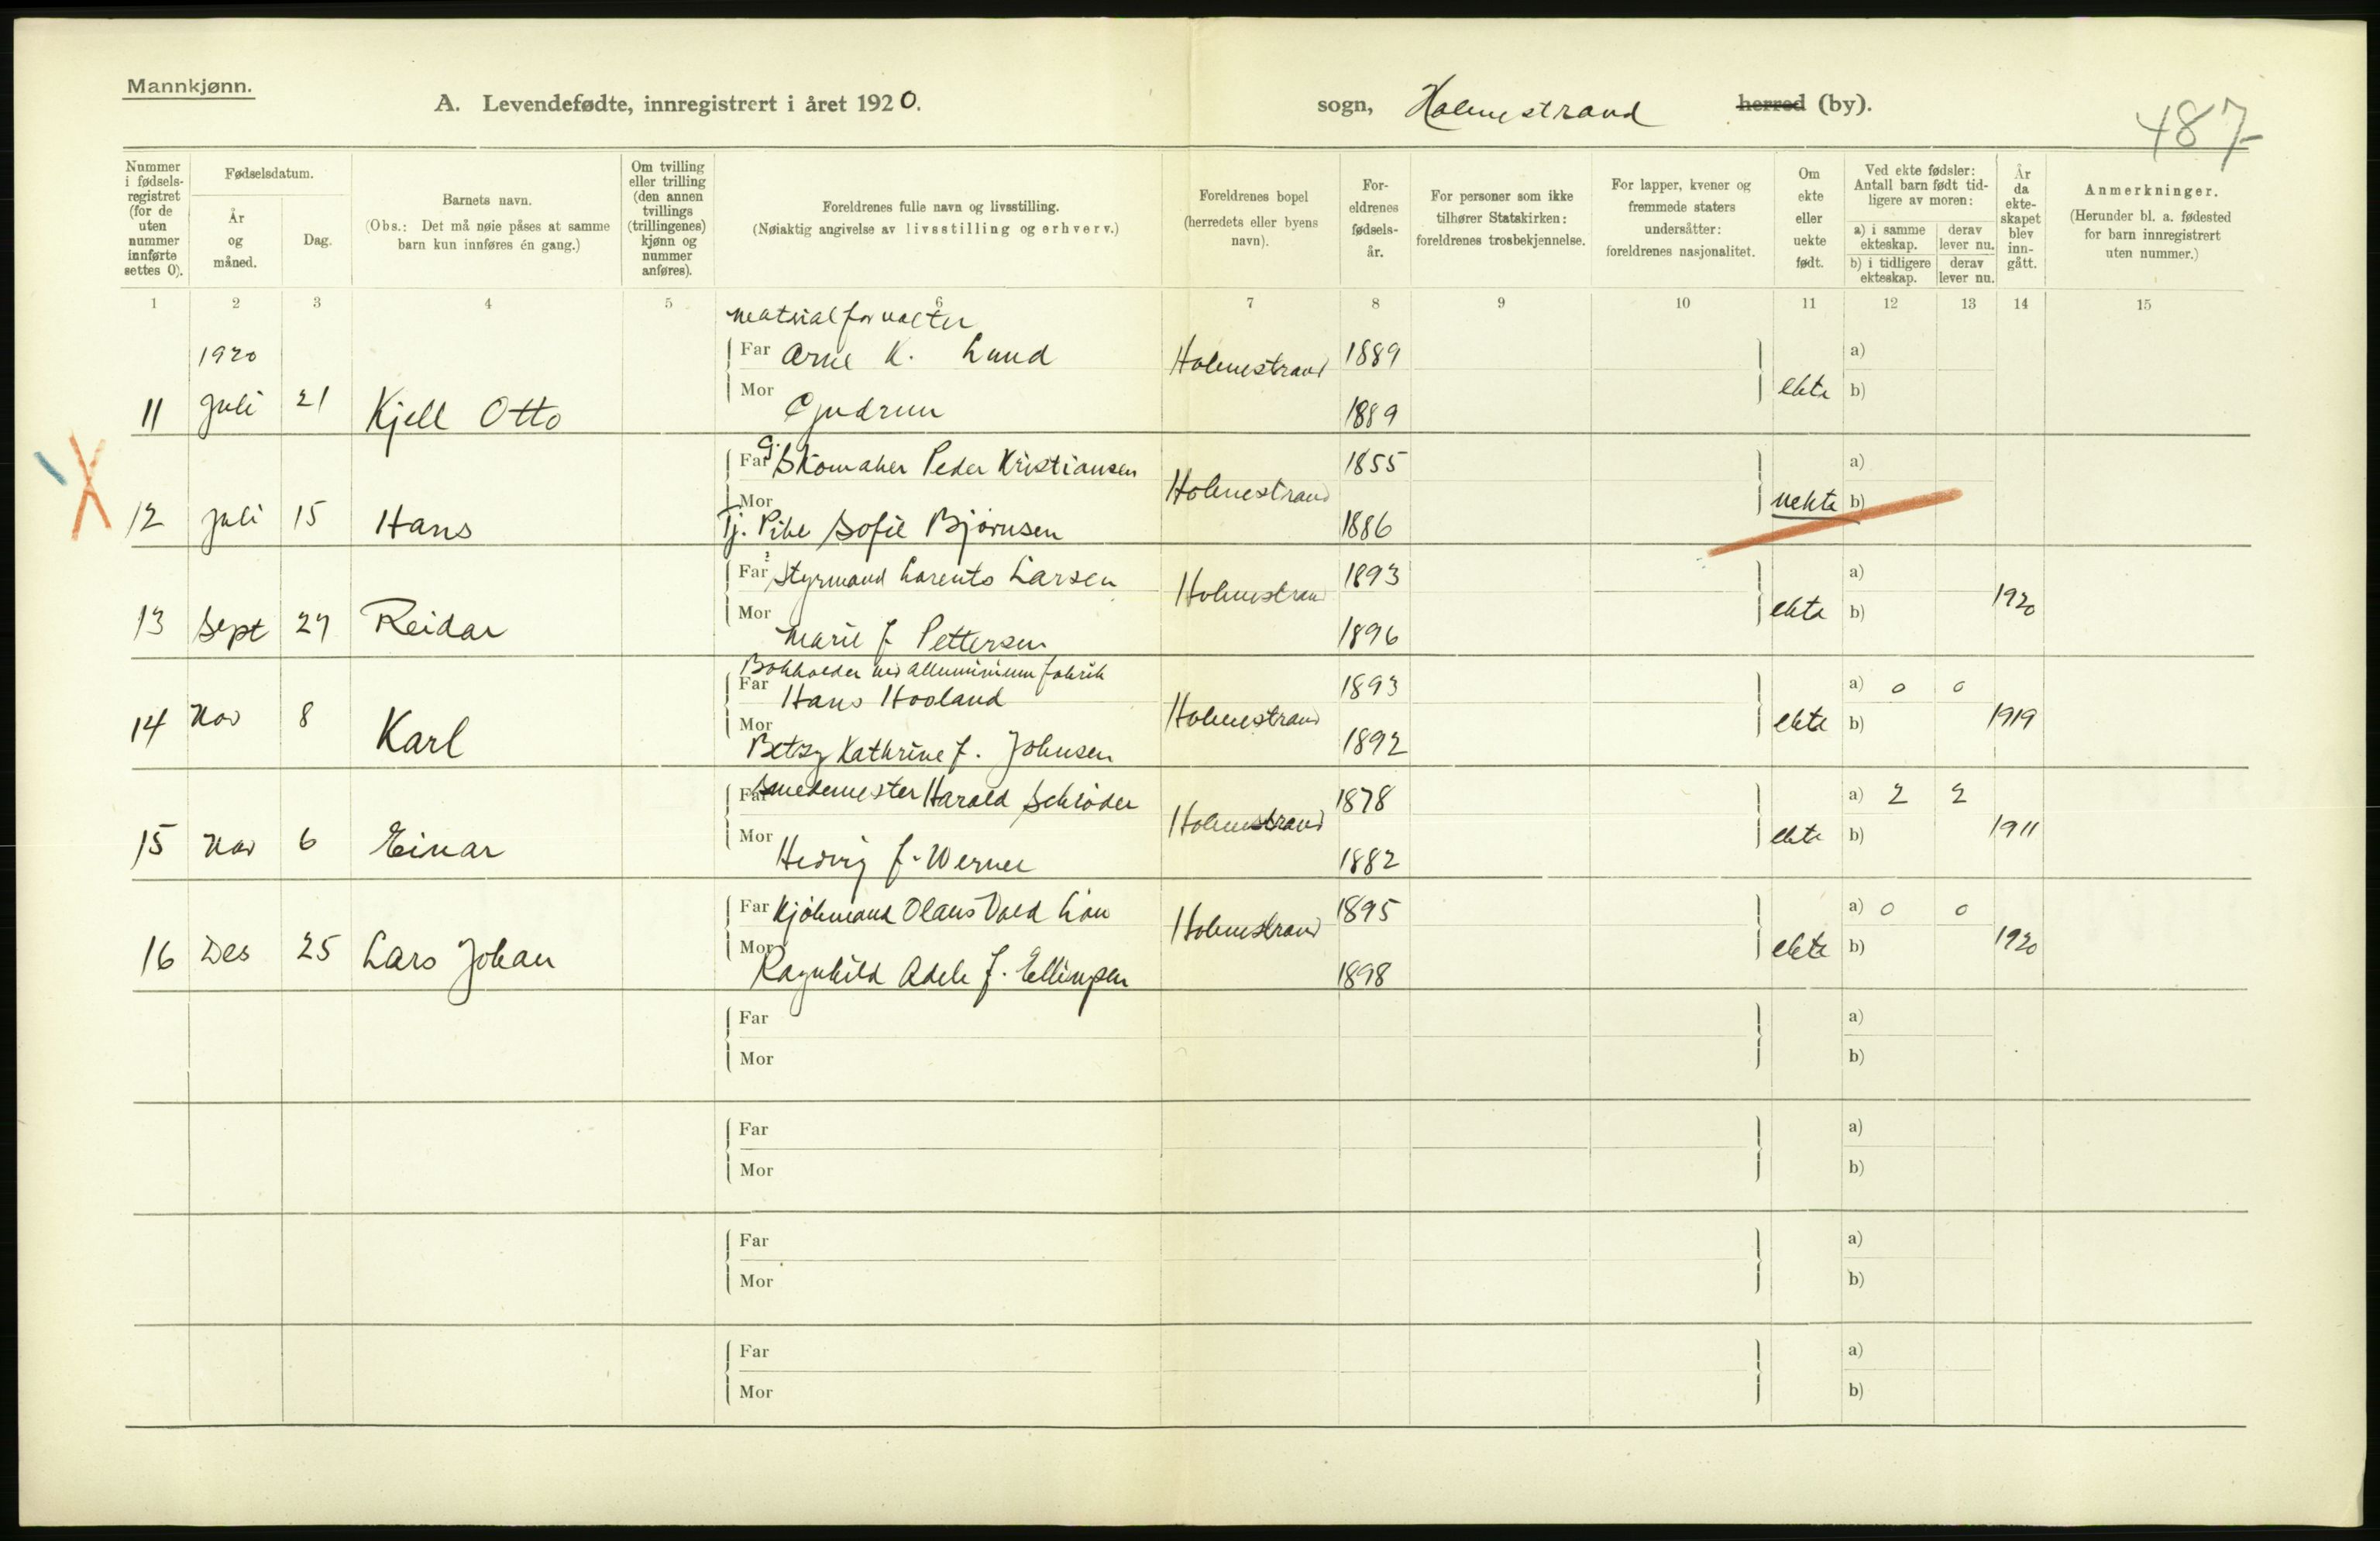 Mannkjønn.
A. Levendefødte, innregistrert i året 1920.
sogn, Holmestrand herred (by).
487
Nummer i fødselsregistret (for de uten nummer innførte settes 0).
Fødselsdatum.
År og måned.
Dag.
Barnets navn.
(Obs.: Det må nøie påses at samme barn kun innføres én gang.)
Om tvilling eller trilling (den annen tvillings (trillingenes) kjønn og nummer anføres).
Foreldrenes fulle navn og livsstilling.
(Nøiaktig angivelse av livsstilling og erhverv.)
Foreldrenes bopel (herredets eller byens navn).
Foreldrenes fødselsår.
For personer som ikke tilhører Statskirken: foreldrenes trosbekjennelse.
For lapper, kvener og fremmede staters undersåtter: foreldrenes nasjonalitet.
Om ekte eller uekte født.
Ved ekte fødsler: Antall barn født tidligere av moren:
a) i samme ekteskap.
derav lever nu.
b) i tidligere ekteskap.
derav lever nu.
År da ekteskapet blev inngått.
Anmerkninger.
(Herunder bl. a. fødested for barn innregistrert uten nummer.)
1 2 3 4 5 6 7 8 9 10 11 12 13 14 15
matrialforvalter
1920 Far Arne K. Lund Holmestrand 1889 a)
11 Juli 21 Kjell Otto Mor Gudrun 1889 ekte b)
Far G. Skomaker Peder Kristiansen Holmestrand 1855 a)
12 Juli 15 Hans Mor Tj. Pike Sofie Bjørnsen 1886 uekte b)
Far Styrmand Larents Larsen Holmestrand 1893 a)
13 Sept 27 Reidar Mor Marie f Pettersen 1896 ekte b) 1920
Bokholder ved alluminium fabrik
Far Hans Hooland Holmestrand 1893 a) 0 0
14 Nov 8 Karl Mor Betzy Kathrine f. Johnsen 1892 ekte b) 1919
Far Smedemester Harald Schrøder Holmestrand 1878 a) 2 2
15 Nov 6 Einar Mor Hedvig f. Werner 1882 ekte b) 1911
Far Kjøbmand Olaus Lian Holmestrand 1895 a) 0 0
16 Des 25 Lars Johan Mor Ragnhild Adele f. Ellingsen 1898 ekte b) 1920
Far a)
Mor b)
Far a)
Mor b)
Far a)
Mor b)
Far a)
Mor b)